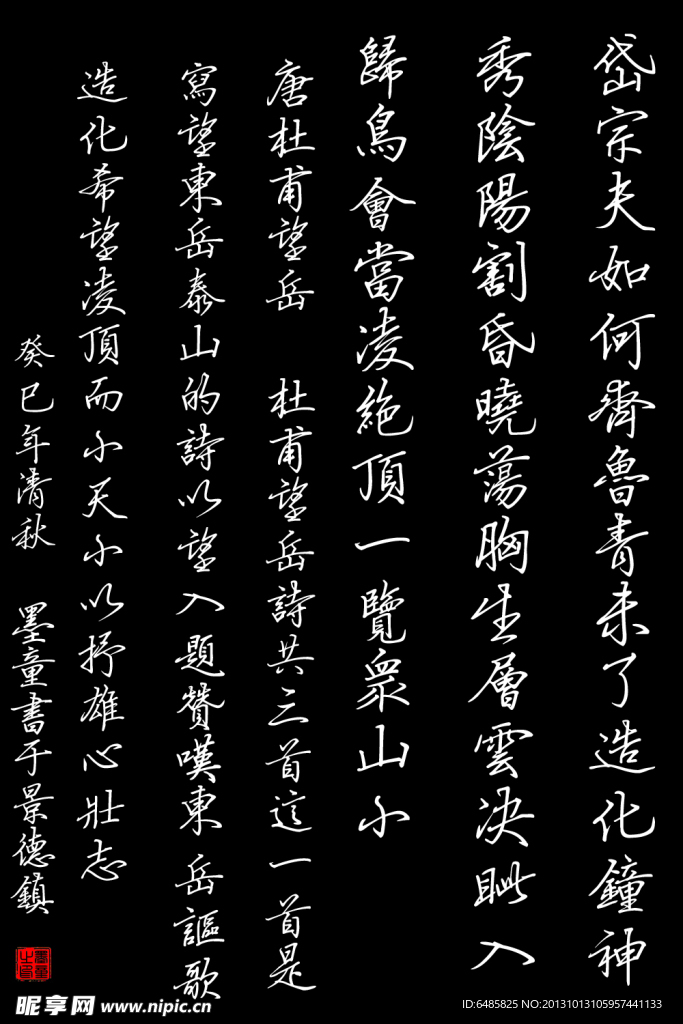 岱宗夫如何齊魯青未了造化鐘神
秀陰陽割昏曉蕩胸生層雲决眦入
歸鳥會當凌絶頂一覽衆山小
唐杜甫望岳 杜甫望岳詩共三首這一首是
寫望東岳泰山的詩以望入題贊嘆東岳謳歌
造化希望凌頂而小天小以抒雄心壯志
癸巳年清秋 墨童書于景德鎮
昵享网 www.nipic.cn
ID:6485825 NO:20131013105957441133